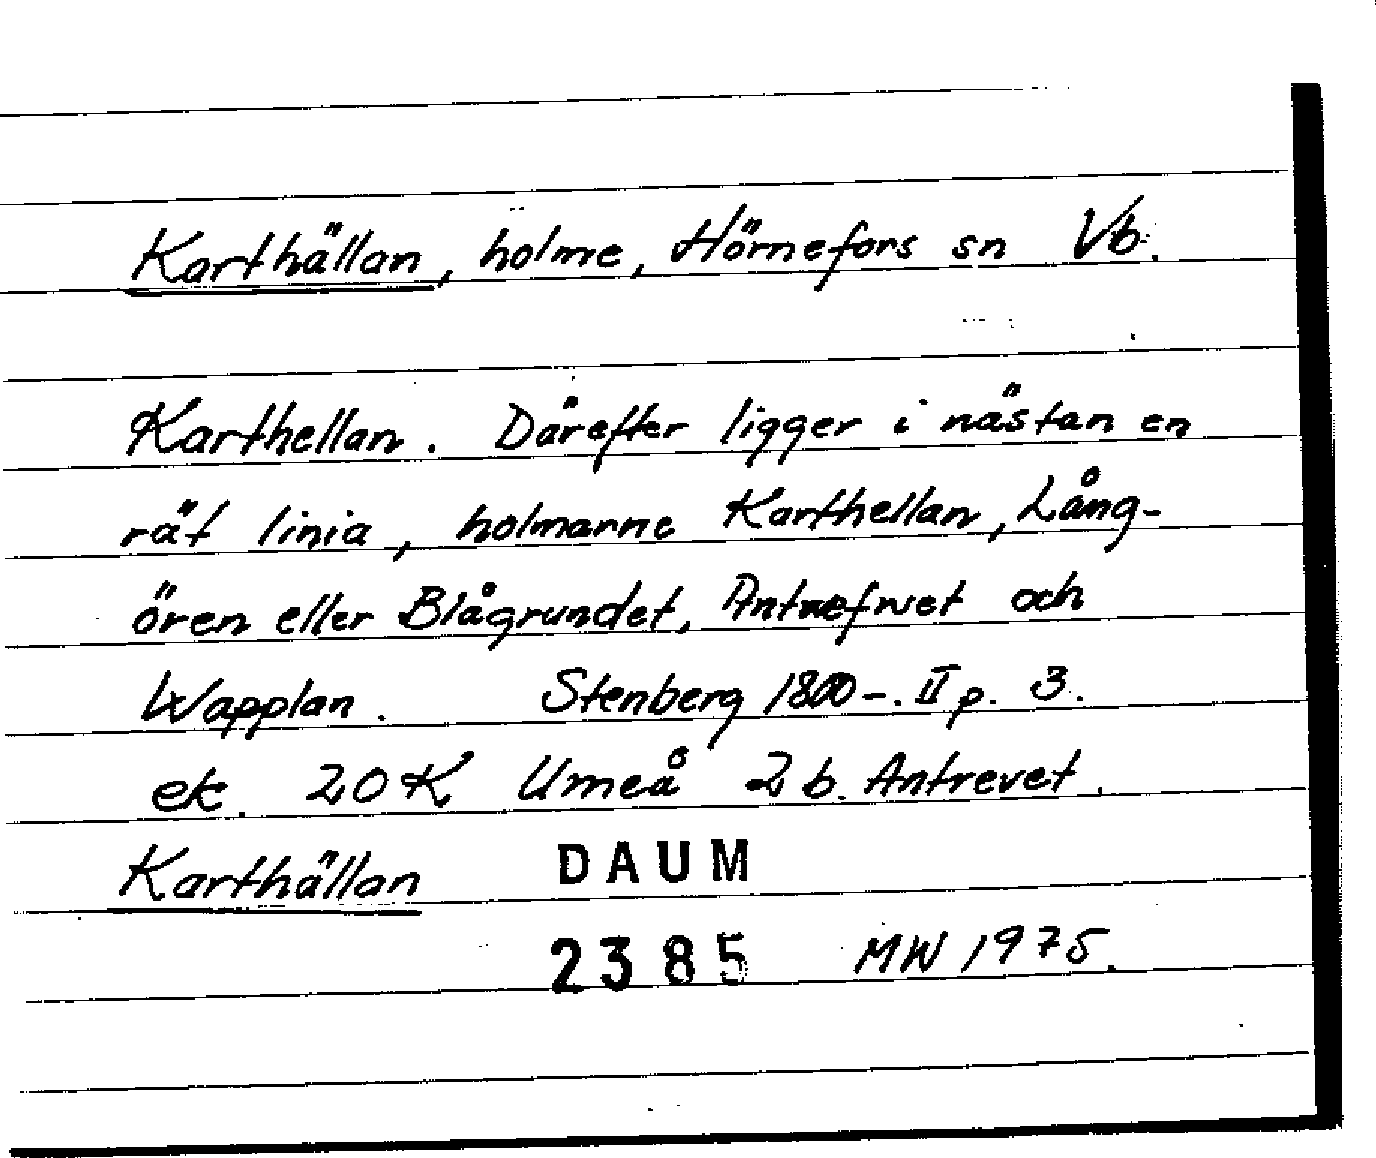 Karthällan, holme, Hörnefors sn Vb.
Karthellan. Därefter ligger i nästan en
rät linia, holmarne Karthellan, Lång-
ören eller Blågrundet, Antrefwet och
Wapplan. Stenberg 1800-. II p. 3.
ek. 20 K Umeå 2 b. Antrevet.
Karthällan DAUM
2385 MW 1975.